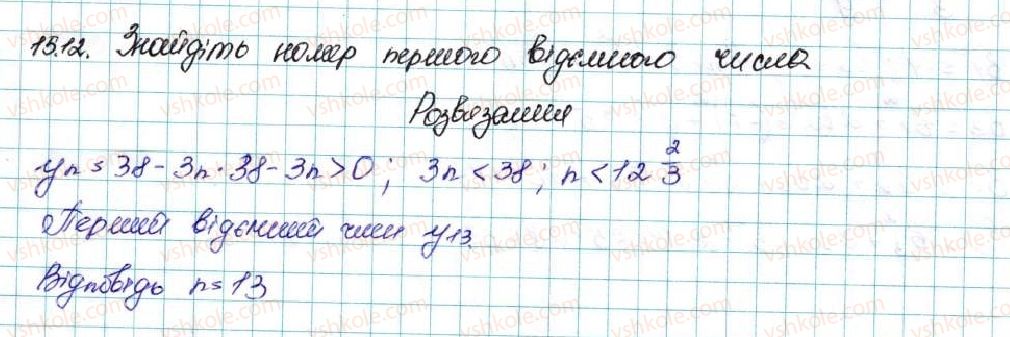 1512. Знайдіть номер першого відємного числа
Розвязання
yn = 38 - 3n · 38 - 3n > 0; 3n < 38; n < 12 2/3
Перший відємний член y13.
Відповідь n = 13